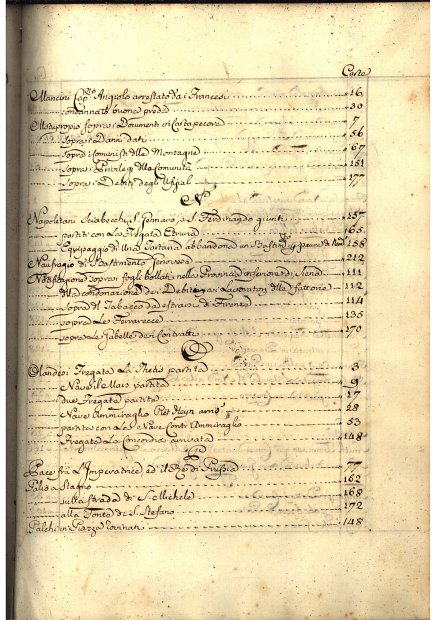 Carte
Mancini Cap.no Angiolo arrestato da i Francesi 16
condannato buona preda 30
Motuproprio sopra i Documenti in Cartapecora 7
Sopra i Danni dati 56
Sopra i Comunisti delle Montagne 67
Sopra i Privilegi della Comunità 151
Sopra i Debiti degli Ufizali 177
N
Napoletani Sciabecchi S. Gennaro, e S. Ferdinando giunti 157
partiti con la Fregata Etruria 165
Equipaggio di Una Tartana abbandona un Bastim. p paura de 158
Naufragio di Bastimento Genovese 212
Notificazione sopra i fogli bollati nella Provincia inferiore di Siena 111
della condonazione dei Debiti ai Lavoratori delle fattorie 112
Sopra il Tabacco da estrarsi di Firenze 114
sopra Le Ferrarecce 135
sopra Le Gabelle dei Contratti 170
O
Olandesi Fregata La Thetis partita 3
Nave il Mars partita 9
due Fregate partite 17
Nave Ammiraglio Piet Heyn arrivò 28
partita con La Nave Cont'Ammiraglio 53
Fregata La Concordia arrivata 148
P
Pace frà L'Imperatrice, ed il Re di Prussia 77
Palio a Stagno 162
sulla Strada di S. Michele 168
alla Fonte di S. Stefano 172
Palchi in Piazza rovinati 148